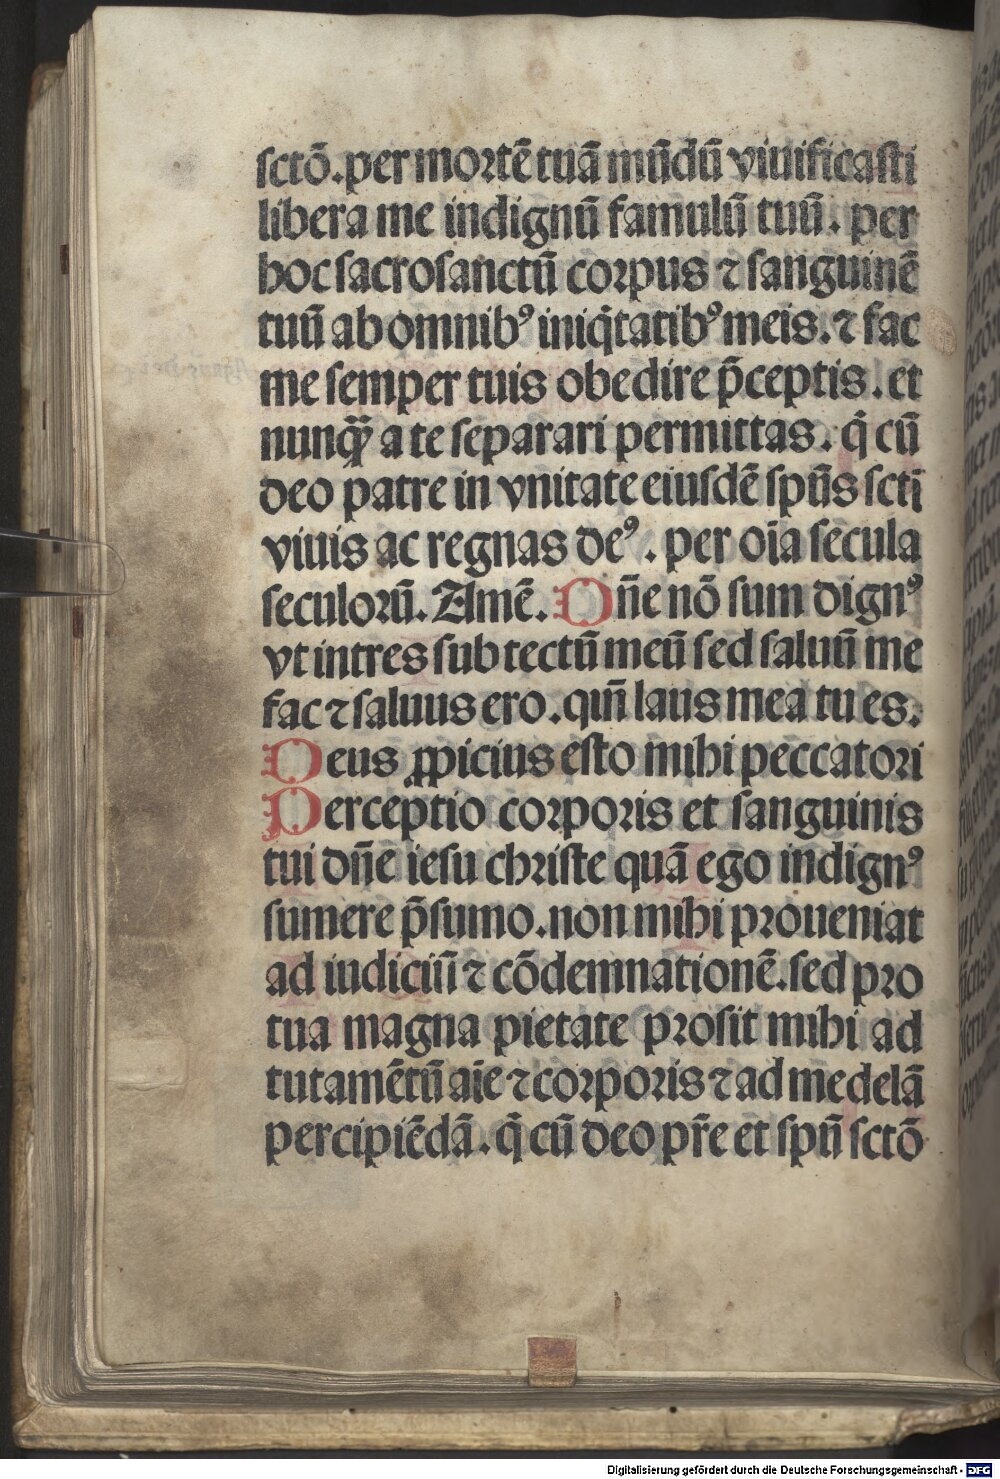 sctō. per mortē tuā mūdū viuificasti
libera me indignū famulū tuū. per
hoc sacrosanctū corpus ⁊ sanguinē
tuū ab omnibꝰ iniq̇tatibꝰ meis. ⁊ fac
me semper tuis obedire p̄ceptis. et
nunqᷓ a te separari permittas. q̇ cū
deo patre in vnitate eiusdē spūs scti
viuis ac regnas deꝰ. per oīa secula
seculorū. Amē. Dn̄e nō sum dignꝰ
vt intres sub tectū meū sed saluū me
fac ⁊ saluus ero. qm̄ laus mea tu es.
Deus ꝓpicius esto mihi peccatori
Perceptio corporis et sanguinis
tui dn̄e iesu christe quā ego indignꝰ
sumere p̄sumo. non mihi proueniat
ad iudiciū ⁊ cōdemnationē. sed pro
tua magna pietate prosit mihi ad
tutamētū aīe ⁊ corporis ⁊ ad medelā
percipiēdā. q̇ cū deo pr̄e et spū sctō
Digitalisierung gefördert durch die Deutsche Forschungsgemeinschaft - DFG